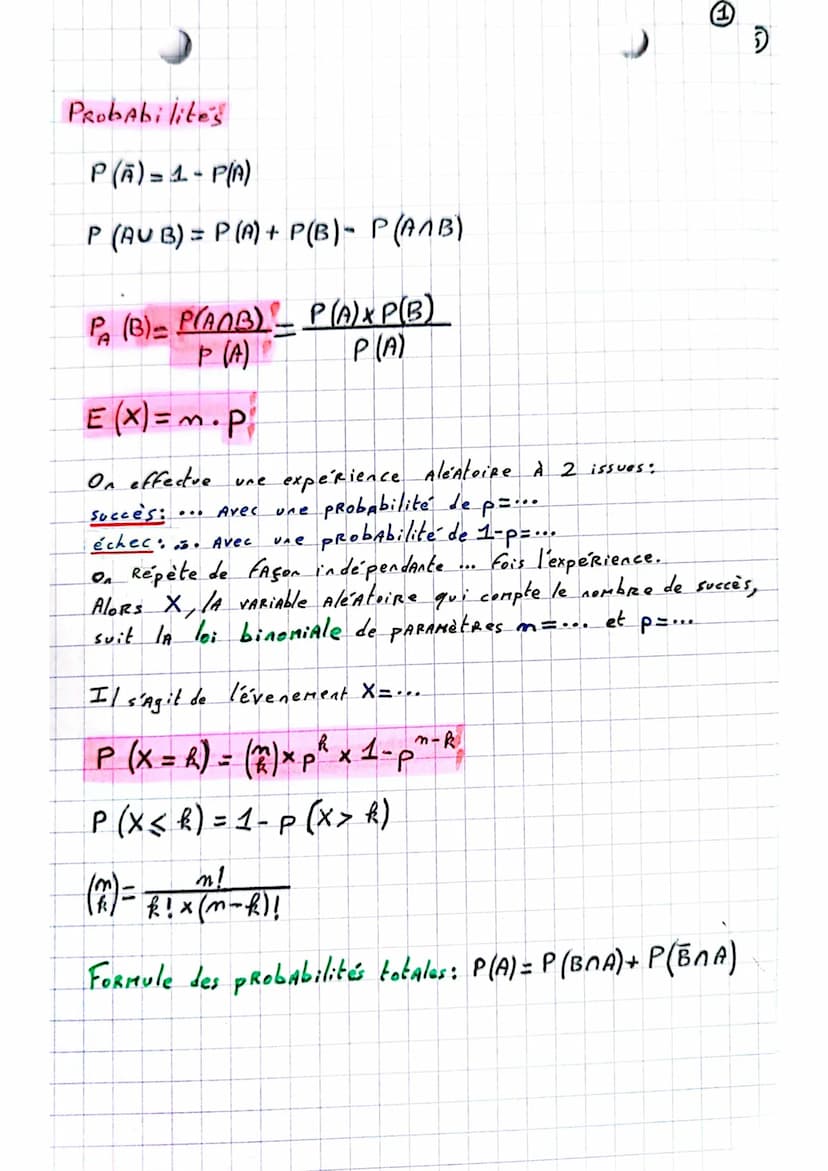 ①
Probabilités
P(Ā) = 1 - P(A)
P(A∪B) = P(A) + P(B) - P(A∩B)
P_A(B) = P(A∩B)/P(A) = P(A)×P(B)/P(A)
E(X) = n . p
On effectue une expérience Aléatoire à 2 issues :
succès : ... Avec une probabilité de p=...
échec : ... Avec une probabilité de 1-p=...
On Répète de façon indépendante ... fois l'expérience.
Alors X, la variable aléatoire qui compte le nombre de succès,
suit la loi binomiale de paramètres n=... et p=...
Il s'agit de l'évenement X=...
P(X = k) = (n k) × p^k × 1-p^n-k
P(X ⩽ k) = 1 - p(X > k)
(n k) = n!/k!×(n-k)!
Formule des probabilités totales : P(A) = P(B∩A) + P(B̄∩A)